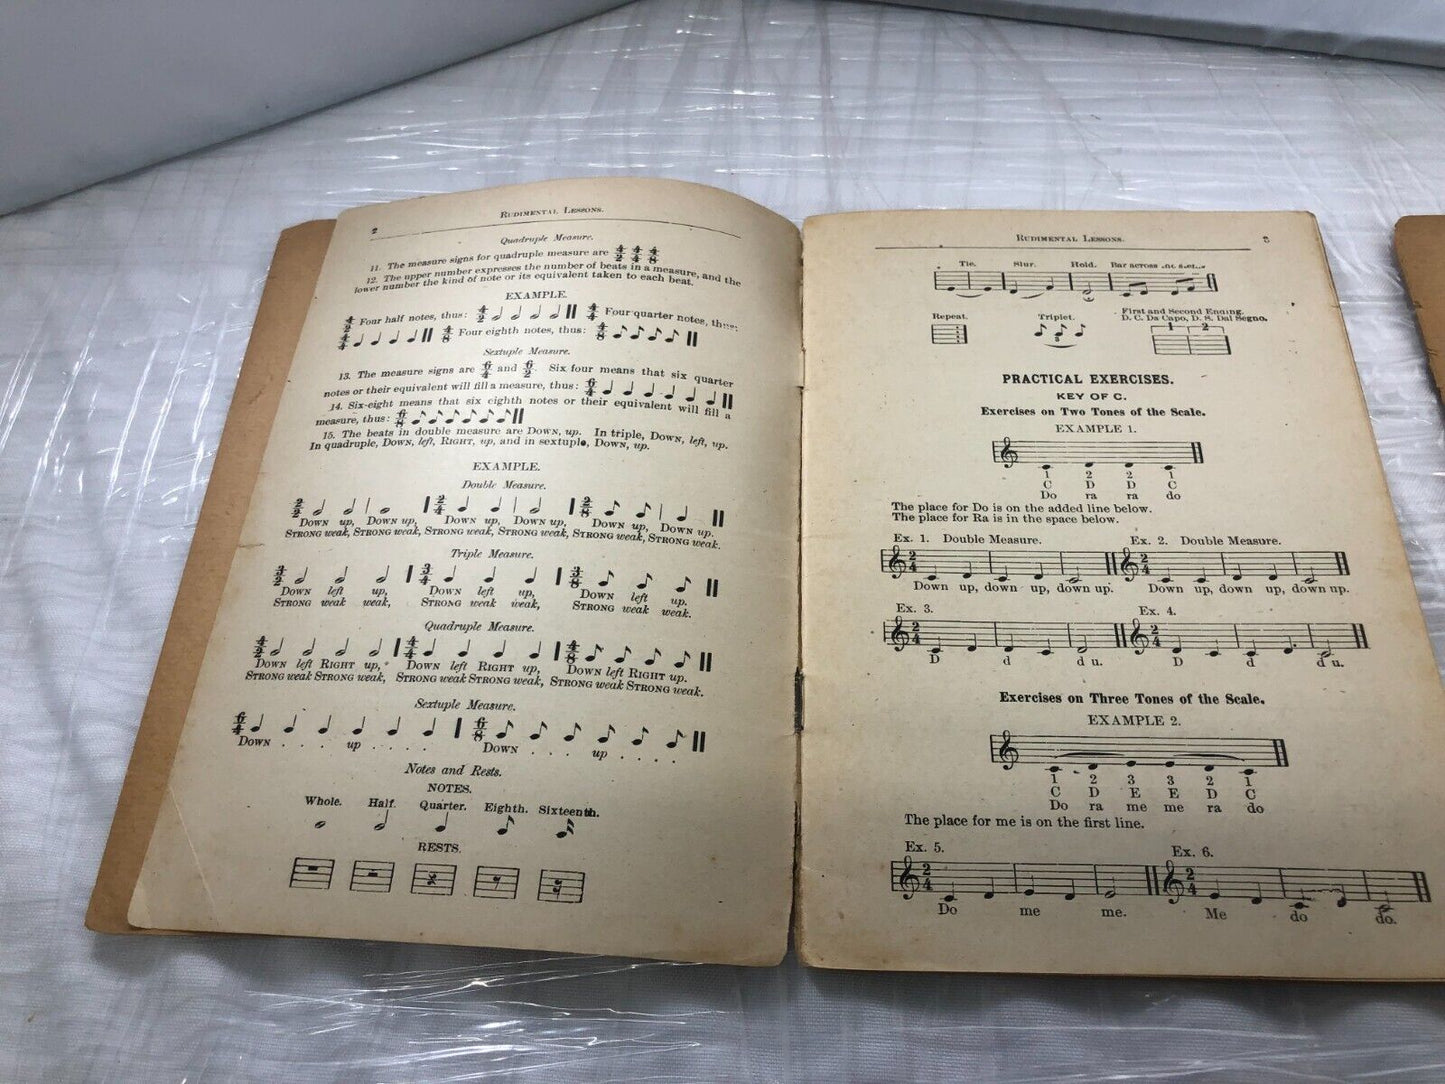 2
RUDIMENTAL LESSONS.
Quadruple Measure.
11. The measure signs for quadruple measure are 4/2 4/4 4/8
12. The upper number expresses the number of beats in a measure, and the
lower number the kind of note or its equivalent taken to each beat.
EXAMPLE.
4/2 Four half notes, thus: 4/2 4/4 Four quarter notes, thus:
4/4 4/8 Four eighth notes, thus: 4/8
Sextuple Measure.
13. The measure signs are 6/4 and 6/2 Six four means that six quarter
notes or their equivalent will fill a measure, thus: 6/4
14. Six-eight means that six eighth notes or their equivalent will fill a
measure, thus: 6/8
15. The beats in double measure are DOWN, up. In triple, DOWN, left, up.
In quadruple, DOWN, left, RIGHT, up, and in sextuple, DOWN, up.
EXAMPLE.
Double Measure.
2/2 2/4 2/8
DOWN up, DOWN up, DOWN up, DOWN up, DOWN up, DOWN up.
STRONG weak, STRONG weak, STRONG weak, STRONG weak, STRONG weak, STRONG weak.
Triple Measure.
3/2 3/4 3/8
DOWN left up, DOWN left up, DOWN left up.
STRONG weak weak, STRONG weak weak, STRONG weak weak.
Quadruple Measure.
4/2 4/4 4/8
DOWN left RIGHT up, DOWN left RIGHT up, DOWN left RIGHT up.
STRONG weak STRONG weak, STRONG weak STRONG weak, STRONG weak STRONG weak.
Sextuple Measure.
6/4 6/8
DOWN . . . . up . . . . DOWN . . . . up . . . .
Notes and Rests.
NOTES.
Whole. Half. Quarter. Eighth. Sixteenth.
RESTS.
RUDIMENTAL LESSONS. 3
Tie. Slur. Hold. Bar across
Repeat. Triplet. First and Second Ending.
D. C. Da Capo, D. S. Dal Segno.
3
1 2
PRACTICAL EXERCISES.
KEY OF C.
Exercises on Two Tones of the Scale.
EXAMPLE 1.
1 2 2 1
C D D C
Do ra ra do
The place for Do is on the added line below.
The place for Ra is in the space below.
Ex. 1. Double Measure. Ex. 2. Double Measure.
2/4 2/4
Down up, down up, down up. Down up, down up, down up.
Ex. 3. Ex. 4.
2/4 2/4
D d d u. D d d u.
Exercises on Three Tones of the Scale.
EXAMPLE 2.
1 2 3 3 2 1
C D E E D C
Do ra me me ra do
The place for me is on the first line.
Ex. 5. Ex. 6.
2/4 2/4
Do me me. Me do do.